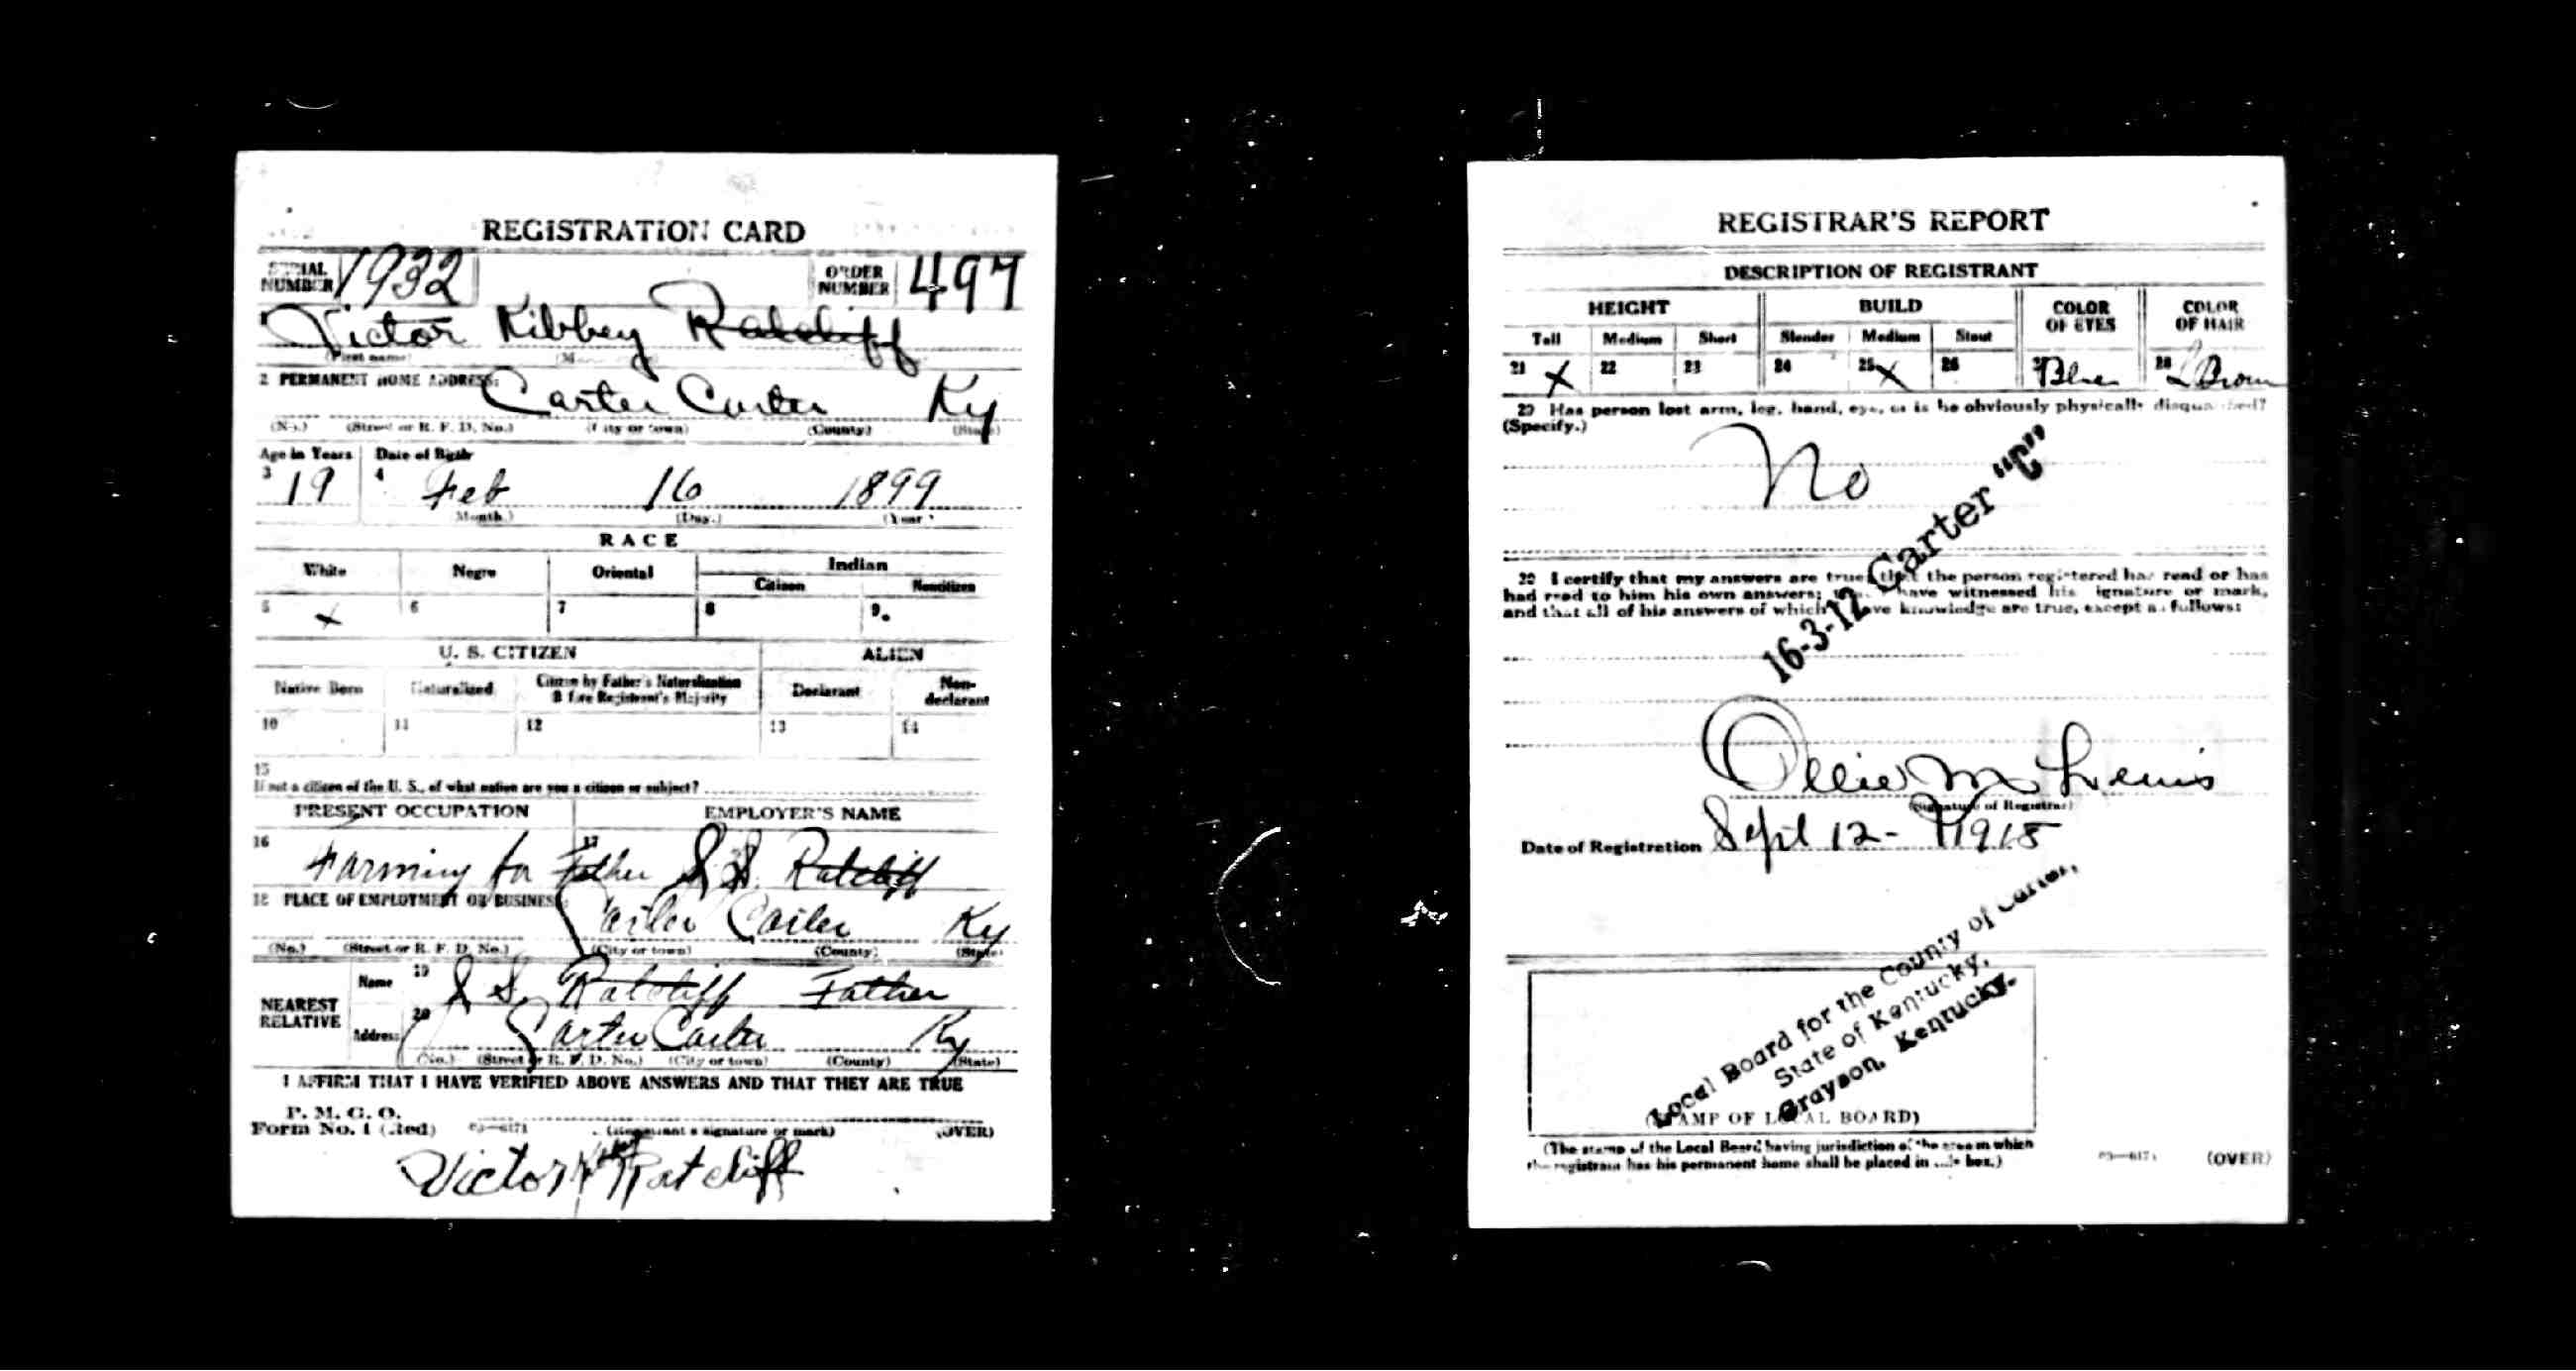 REGISTRATION CARD
SERIAL NUMBER 1932 ORDER NUMBER 497
Victor Kibbey Ratcliff
(First name)
2 PERMANENT HOME ADDRESS: Carter Carter Ky
(No.) (Street or R. F. D. No.) (City or town) (County) (State)
Age in Years Date of Birth
3 19 4 Feb 16 1899
(Month.) (Day.) (Year.)
RACE
White Negro Oriental Indian
Citizen Noncitizen
5 X 6 7 8 9
U. S. CITIZEN ALIEN
Native Born Naturalized Citizen by Father's Naturalization Before Registrant's Majority Declarant Non-declarant
10 11 12 13 14
15
If not a citizen of the U. S., of what nation are you a citizen or subject?
PRESENT OCCUPATION EMPLOYER'S NAME
16 Farming for Father 17 S. S. Ratcliff
18 PLACE OF EMPLOYMENT OR BUSINESS: Carter Carter Ky
(No.) (Street or R. F. D. No.) (City or town) (County) (State)
NEAREST RELATIVE Name 19 S S. Ratcliff Father
Address 20 Carter Carter Ky
(No.) (Street or R. F. D. No.) (City or town) (County) (State)
I AFFIRM THAT I HAVE VERIFIED ABOVE ANSWERS AND THAT THEY ARE TRUE
P. M. G. O.
Form No. 1 (Red) 03—6171 (Registrant's signature or mark) (OVER)
Victor Ratcliff
REGISTRAR'S REPORT
DESCRIPTION OF REGISTRANT
HEIGHT BUILD COLOR OF EYES COLOR OF HAIR
Tall Medium Short Slender Medium Stout
21 X 22 23 24 25 X 26 27 Blue 28 L Brown
29 Has person lost arm, leg, hand, eye, or is he obviously physically disqualified?
(Specify.)
No
16-3-12 Carter "C"
30 I certify that my answers are true; that the person registered has read or has
had read to him his own answers; that I have witnessed his signature or mark,
and that all of his answers of which I have knowledge are true, except as follows:
Ollie M Lewis
(Signature of Registrar)
Date of Registration Sept 12 - 1918
Local Board for the County of Carter,
State of Kentucky,
Grayson, Kentucky.
(STAMP OF LOCAL BOARD)
(The stamp of the Local Board having jurisdiction of the area in which
the registrant has his permanent home shall be placed in this box.)
03—6171 (OVER)